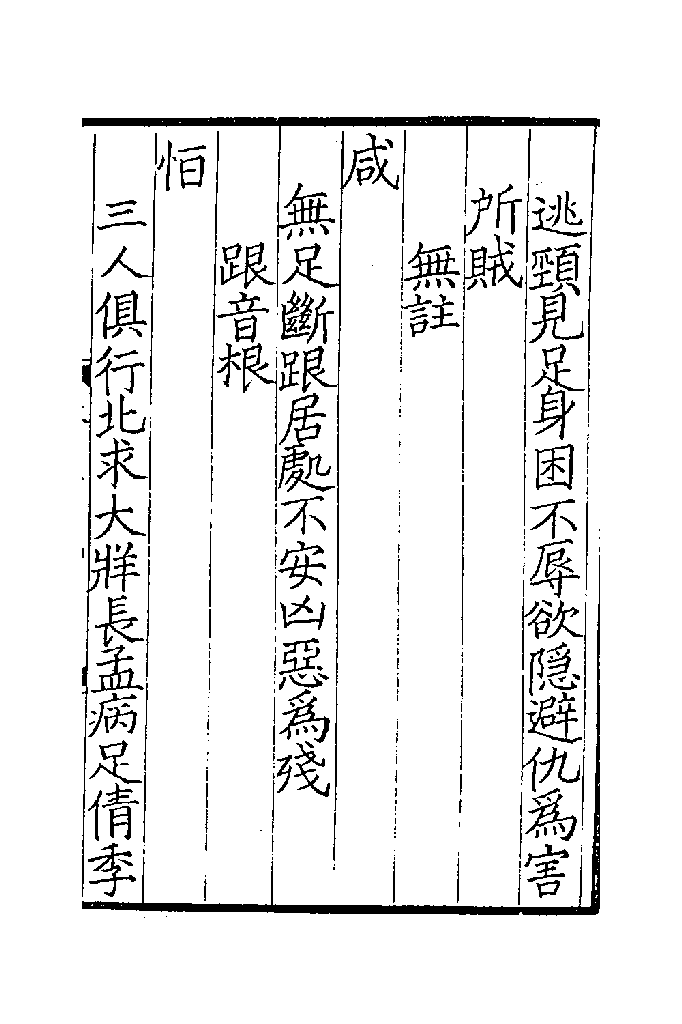 逃頸見足身困不辱欲隱避仇爲害
所賊
無註
咸
無足斷跟居處不安凶惡爲殘
跟音根
恒
三人俱行北求大牂長孟病足倩季